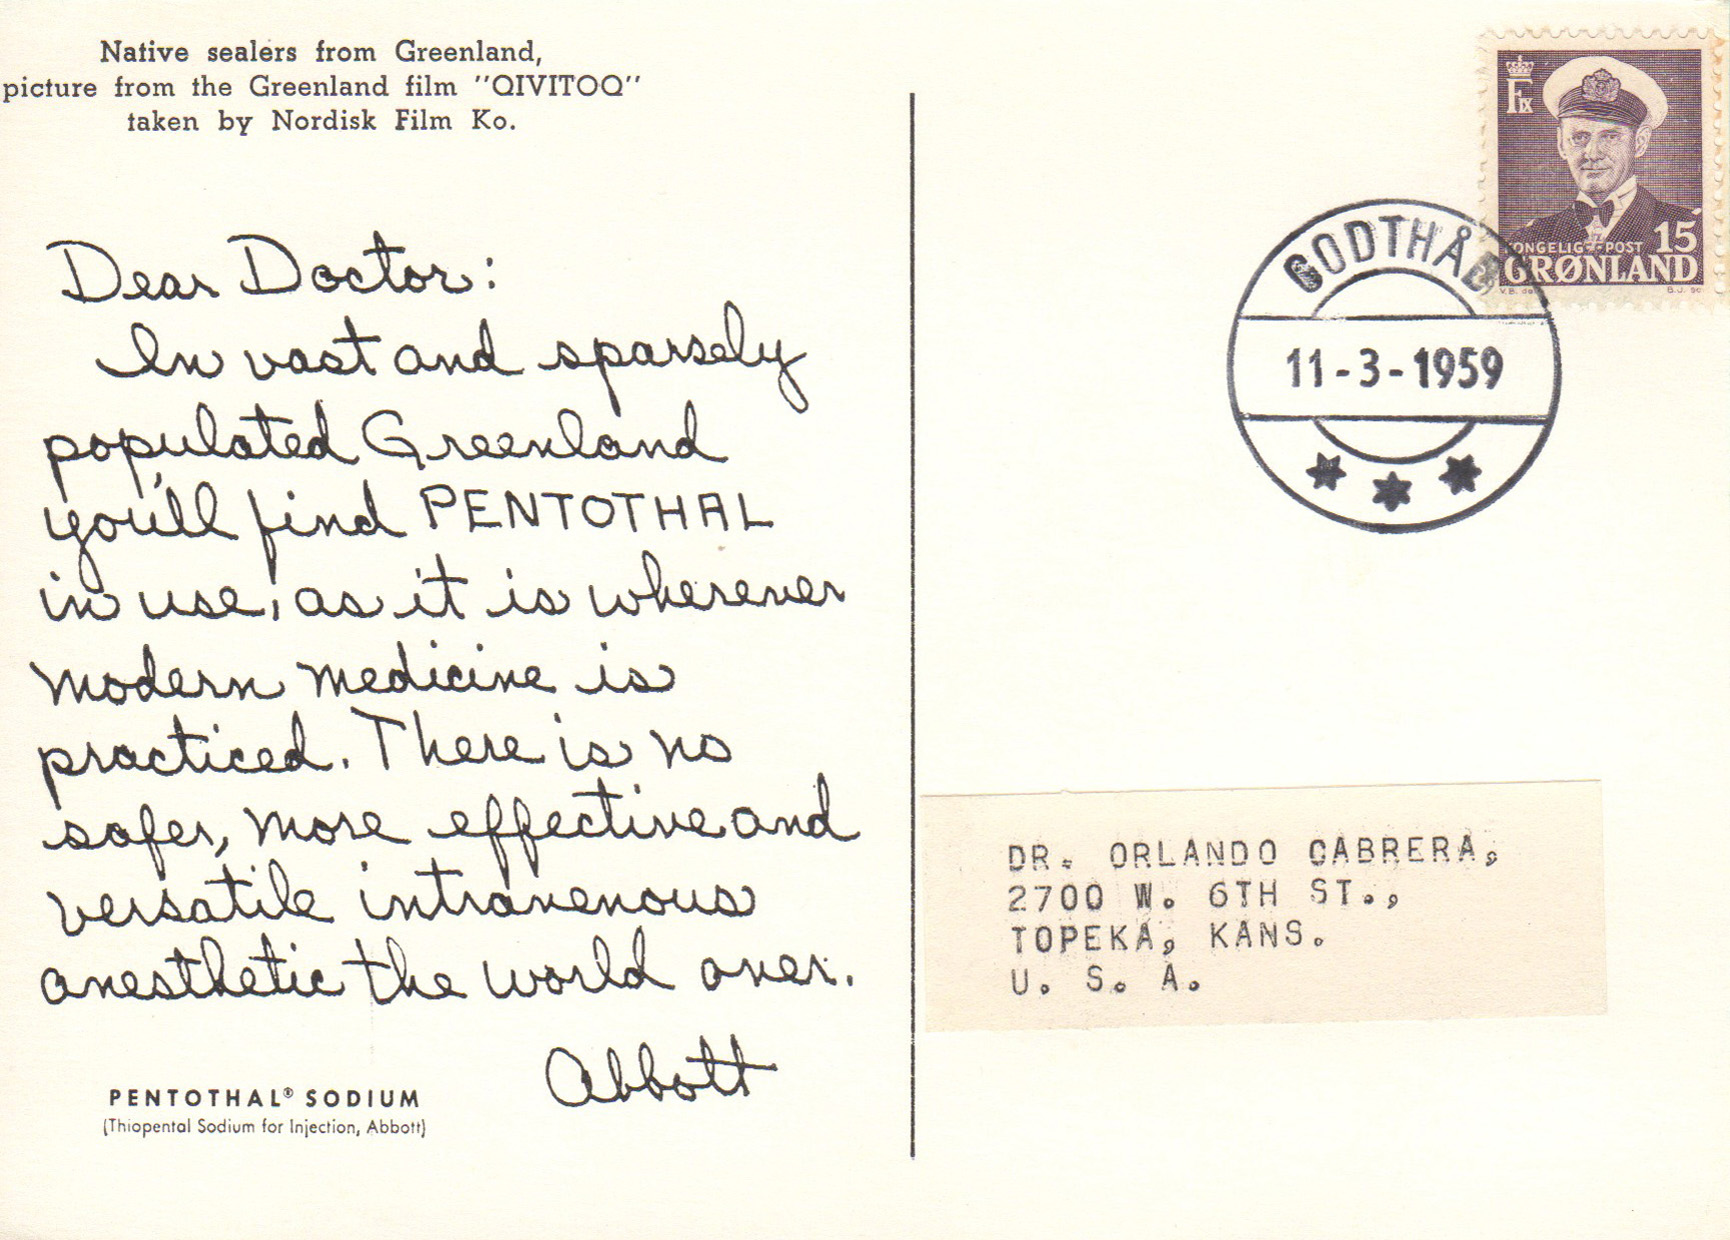 Native sealers from Greenland,
picture from the Greenland film "QIVITOQ"
taken by Nordisk Film Ko.
Dear Doctor:
In vast and sparsely
populated Greenland
you'll find PENTOTHAL
in use, as it is wherever
modern medicine is
practiced. There is no
safer, more effective and
versatile intravenous
anesthetic the world over.
Abbott
PENTOTHAL® SODIUM
(Thiopental Sodium for Injection, Abbott)
F IX
KONGELIG POST 15
GRØNLAND
V.B. del. B.J. sc.
GODTHÅB
11-3-1959
DR. ORLANDO CABRERA,
2700 W. 6TH ST.,
TOPEKA, KANS.
U. S. A.